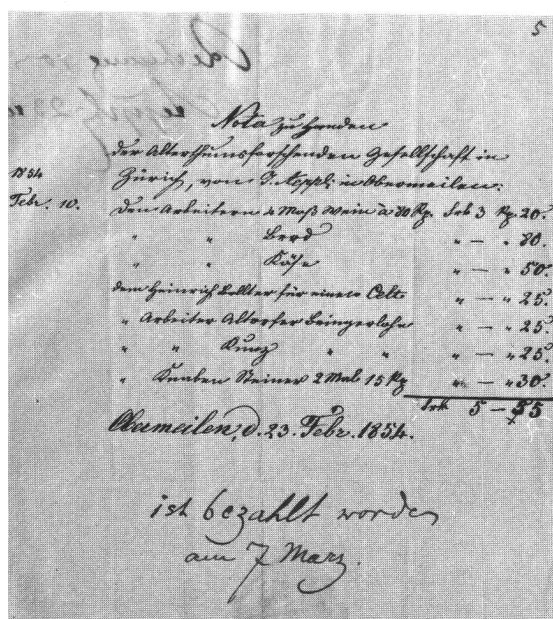 5
Nota zu Handen
der Alterthumsforschenden Gesellschaft in
Zürich, von J. Aeppli in Obermeilen:
1854
Febr. 10. den Arbeitern 4 Maß Wein à 80 Rp. frk 3 Rp. 20.
" " Brod " — " 80.
" " Käse " — " 50.
dem Heinrich für einen Celt " — " 25.
" Arbeiter Altorfer " — " 25.
" " Kunz " " " — " 25.
" Knaben Steiner 2 Mal 15 Rp " — " 30.
frk 5 – 55
Obermeilen, d. 23. Febr. 1854.
ist bezahlt worden
am 7 März.